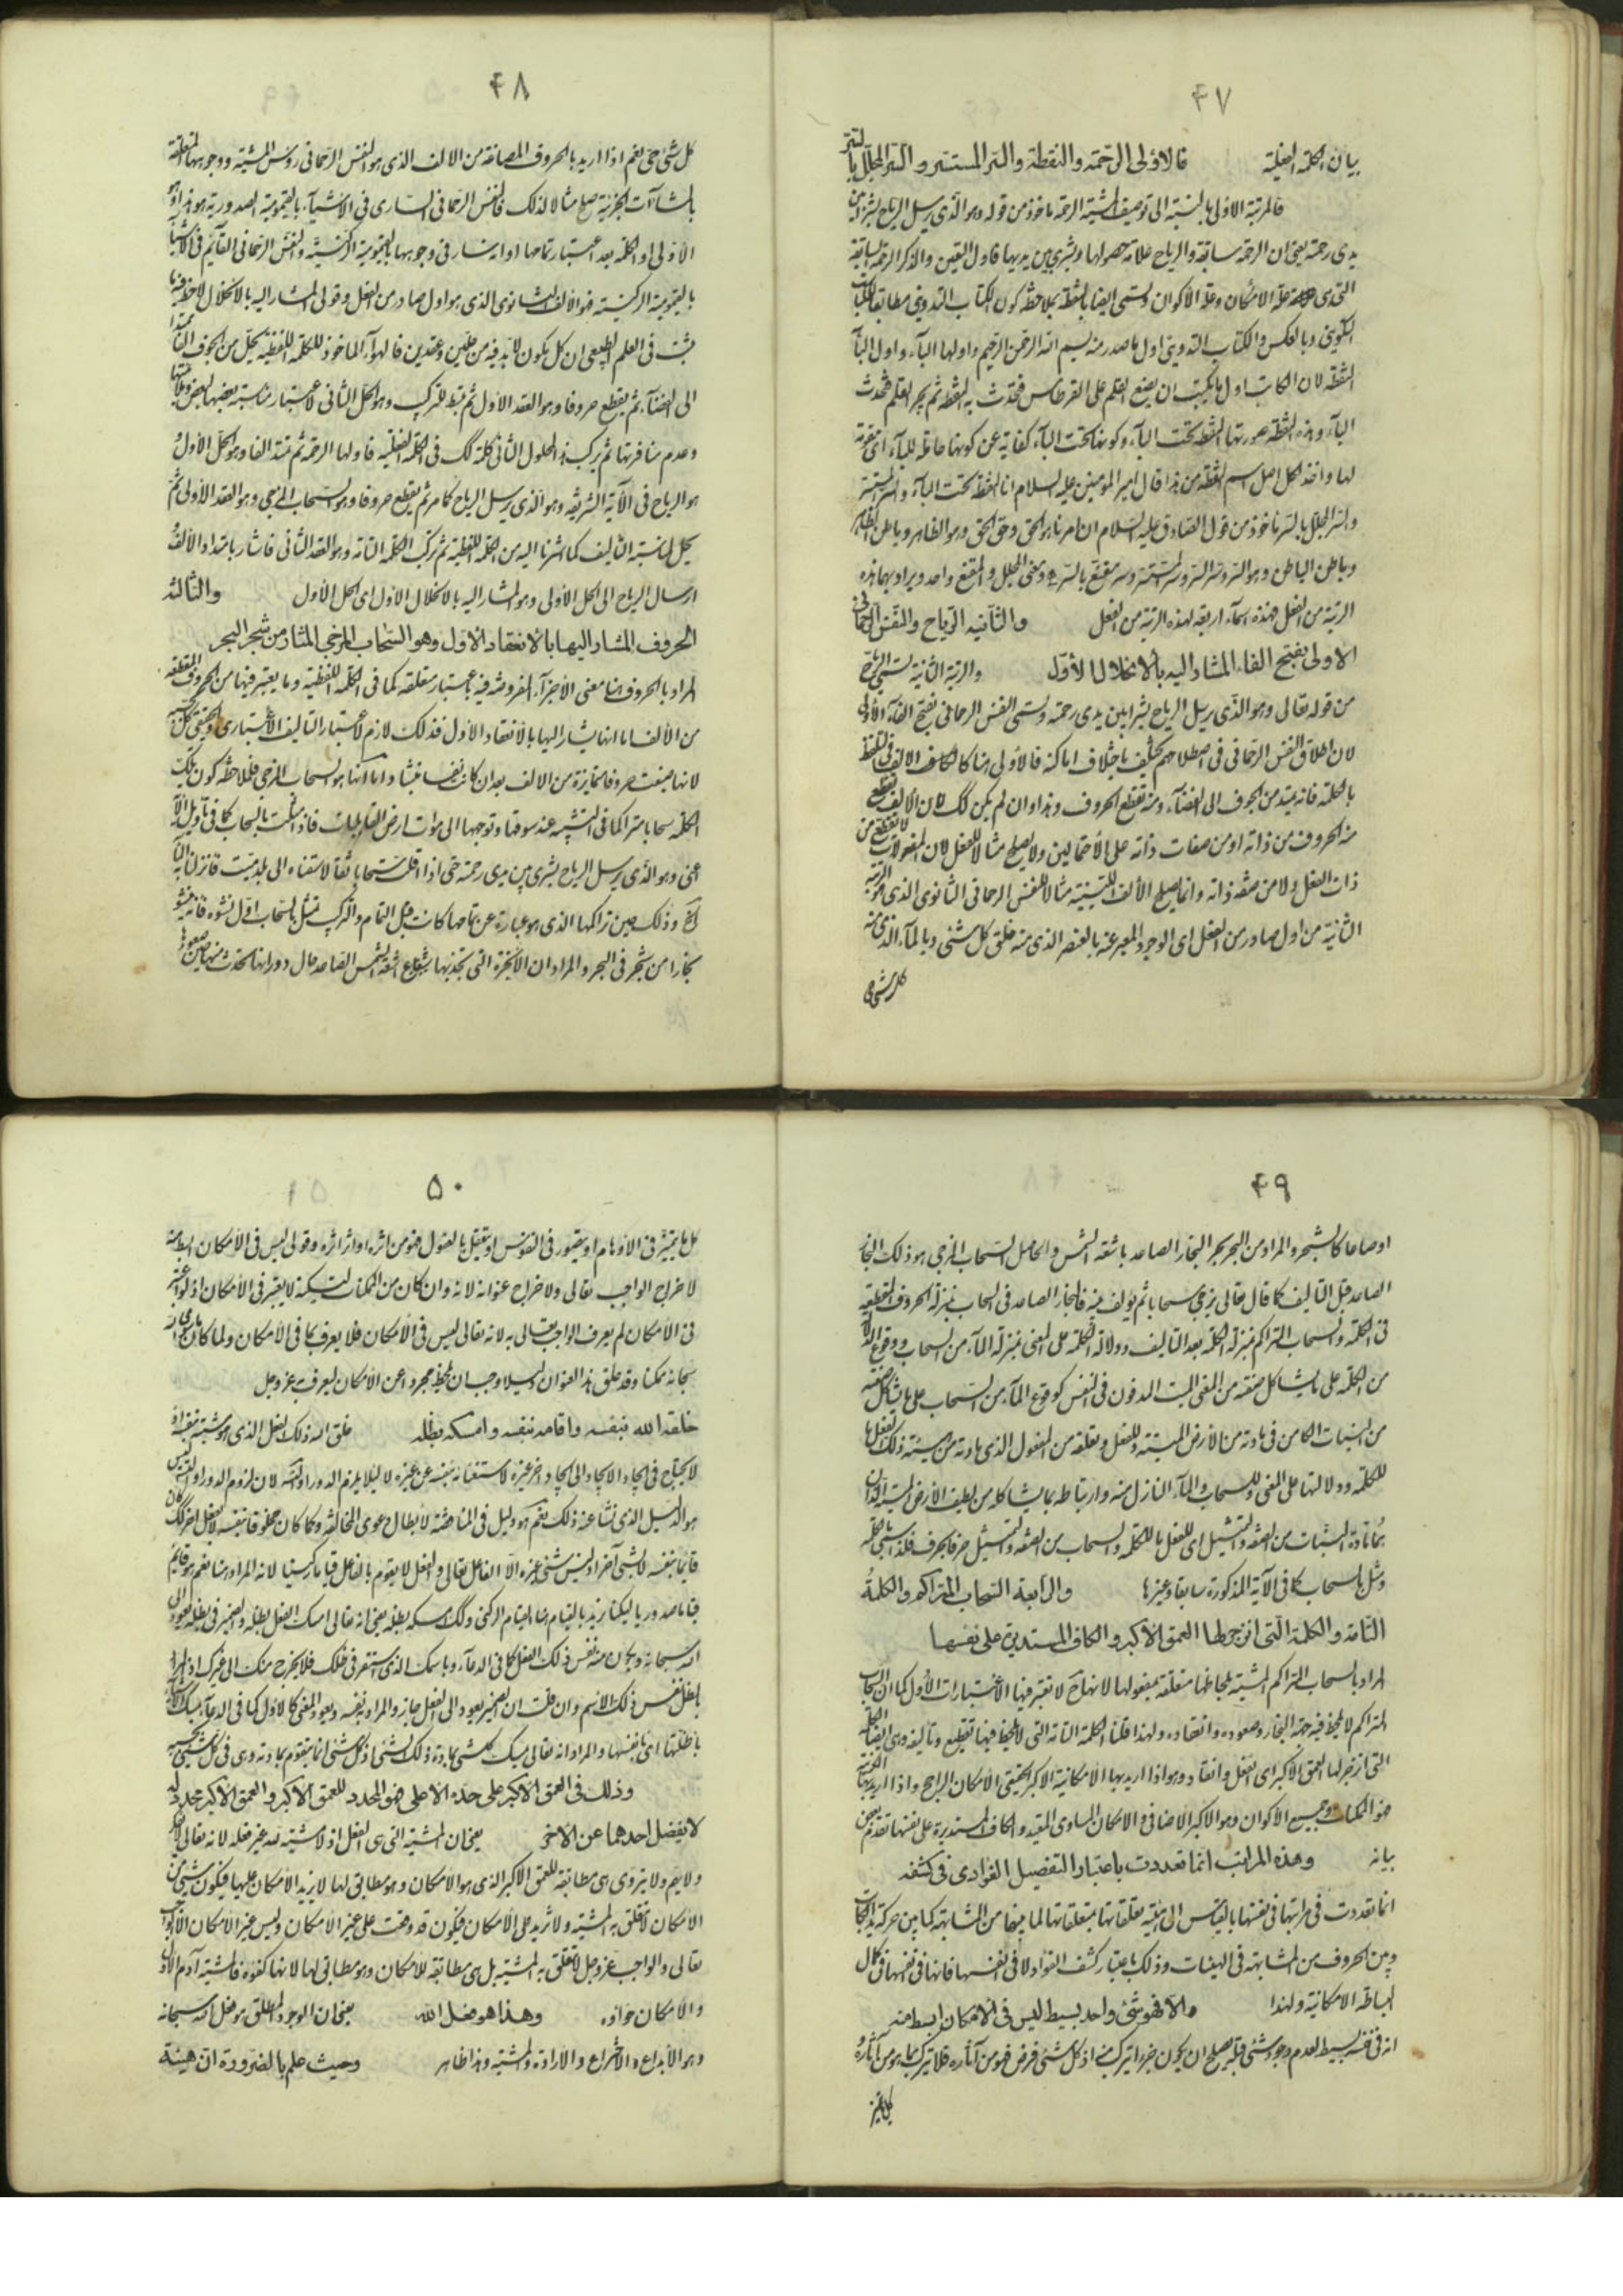 ۴۷
بيان الكلمة الفعلية فالاولى الرحمة والنقطة والسر المستتر والسر المجلل بالسر
فالمرتبة الاولى بالنسبة الى توصيف المشية الرحمة ماخوذ من قوله وهو الذى يرسل الرياح بشرا بين
يدى رحمته يعنى ان الرحمة سابقة والرياح علامة حصولها وبشرى بين يديها فاول التعين والذكر الرحمة السابقة
التى هى علة الامكان وعلة الاكوان وتسمى ايضا بالنقطة بملاحظة كون الكتاب التدوينى مطابقا للكتاب
التكوينى وبالعكس والكتاب التدوينى اول ما صدر منه بسم الله الرحمن الرحيم واولها الباء واول الباء
النقطة لان الكاتب اول ما يكتب ان يضع القلم على القرطاس فتحدث به النقطة ثم يجر القلم فتحدث
الباء وهذه النقطة صورتها النقطة تحت الباء وكونها تحت الباء كناية عن كونها حاملة للباء اى مقومة
لها واخذ لكل اصل اسم النقطة من هذا قال امير المؤمنين عليه السلام انا النقطة تحت الباء والسر المستتر
والسر المجلل بالسر ماخوذ من قول الصادق عليه السلام ان امرنا هو الحق وحق الحق وهو الظاهر وباطن الظاهر
وباطن الباطن وهو السر وسر السر وسر المستتر وسر مقنع بالسر ومعنى المجلل والمقنع واحد ويراد بهما هذه
الرتبة من الفعل فهذه اسماء اربعة لهذه الرتبة من الفعل والثانيه الرياح والنفس الرحمانى
الاولى بفتح الفاء المشار اليه بالانحلال الاول والرتبة الثانية تسمى الرياح
من قوله تعالى وهو الذى يرسل الرياح بشرا بين يدى رحمته وتسمى النفس الرحمانى بفتح الفاء الاولى
لان اطلاق النفس الرحمانى فى اصطلاحهم تختلف باختلاف اماكنه فالاولى هنا كالالف فى التلفظ
بالكلمة فانه يمتد من الجوف الى الفضاء ومنه تقطع الحروف وهذا وان لم يكن كك لان الالف تقطع
منه الحروف من ذاته او من صفات ذاته على الاحتمالين ولا يصلح مثالا للفعل لان المفعولات لا تقطع من
ذات الفعل ولا من صفة ذاته وانما يصلح الالف اللينية مثالا للنفس الرحمانى الثانوى الذى هو المرتبة
الثانية من اول صادر من الفعل اى الوجود المعبر عنه بالعنصر الذى منه خلق كل شئ وبالماء الذى منه
كل شئ حى
۴۸
كل شئ حى نعم اذا اريد بالحروف المصاغة من الالف الذى هو النفس الرحمانى رؤس المشية ووجوهها المتعلقة
بالمنشآت الجزئية صلح مثالا لذلك فالنفس الرحمانى السارى فى الاشياء بالقيومية الصدورية هو هذا وهو
الاولى او الكلمة بعد اعتبار تمامها او انه سار فى وجوهها بالقيومية الركنية والنفس الرحمانى القائم فى الاشياء
بالقيومية الركنية فهو الالف الثانوى الذى هو اول صادر من الفعل وقولى المشار اليه بالانحلال لاحظ فيه ما
ثبت فى العلم الطبيعى ان كل يكون لابد فيه من حلين وعقدين فالهواء الماخوذ للكلمة اللفظية يحل من الجوف الفا ممتدا
الى الفضاء ثم يقطع حروفا وهو العقد الاول ثم تبقط للتركيب وهو الحل الثانى لاعتبار مناسبة بعضها لبعض وملائمتها
وعدم منافرتها ثم يركب فى الحلول الثانى كلمة كك فى الكلمة الفعلية فاولها الرحمة ثم تمتد الفا وهو الحل الاول
هو الرياح فى الآية الشريفة وهو الذى يرسل الرياح كما مر ثم يقطع حروفا وهو السحاب المزجى وهو العقد الاول ثم
يحل لمناسبة التاليف كما اشرنا اليه من الكلمة اللفظية ثم تركب الكلمة التامة وهو العقد الثانى فاشار بامتداد الالف
ارسال الرياح الى الحل الاولى وهو المشار اليه بالانحلال الاول اى الحل الاول والثالثه
الحروف المشار اليها بالانعقاد الاول وهو السحاب المزجى المثار من شجر البحر
المراد بالحروف هنا معنى الاجزاء المفروضة فيه باعتبار متعلقه كما فى الكلمة اللفظية وما يعتبر فيها من الحروف المقطعة
من الالف اما انها يشار اليها بالانعقاد الاول فذلك لازم لاعتبار التاليف الاعتبارى والحقيقى كك
لانها صيغت حروفا متمايزة من الالف بعد ان كانت نفسا منبثا واما انها هو السحاب المزجى فلملاحظة كون تلك
الكلمة سحابا متراكما فى التشبيه عند سوقها وتوجهها الى موات ارض القابليات فاذا مثلت بالسحاب كما فى تاويل الآية
اعنى وهو الذى يرسل الرياح بشرى بين يدى رحمته حتى اذا اقلت سحابا ثقالا سقناه الى بلد ميت فانزلنا به الماء
الخ وذلك حين تراكمها الذى هو عبارة عن تمامها كانت قبل التمام والتركيب تمثل بالسحاب اول نشوه فانه ينشؤ
بخارا من شجر فى البحر والمراد ان الابخرة التى تجذبها بشعاع اشعة الشمس الصاعد حال دورانها تحدث منها حين صعودها
۴۹
اوضاعا كالشجر والمراد من البحر بحر البخار الصاعد باشعة الشمس والحاصل السحاب المزجى هو ذلك البخار
الصاعد قبل التاليف كما قال تعالى يزجى سحابا ثم يؤلف بينه فالبخار الصاعد فى السحاب بمنزلة الحروف المقطعة
فى الكلمة والسحاب المتراكم بمنزلة الكلمة بعد التاليف ودلالة الكلمة على المعنى بمنزلة الماء من السحاب ووقوع الدلالة
من الكلمة على ما يشاكل صفته من المعنى الميت المدفون فى النفس كوقوع الماء من السحاب على ما يشاكل صفته
من النبات الكامن فى مادته من الارض الميتة وللفعل وتعلقه من المفعول الذى مادته من هيئة ذلك الفعل ما
للكلمة ودلالتها على المعنى وللسحاب والماء النازل منه وارتباطه بما يشاكله من لطيف الارض الميتة اللذان
هما مادة النبات من الصفة والتمثيل اى للفعل بالكلمة والسحاب من الصفة والتمثيل حرفا بحرف فلذا سمى بالكلمة
ومثل بالسحاب كما فى الآية المذكورة سابقا وغيرها والرابعة السحاب المتراكم والكلمة
التامة والكلمة التى انزجر لها العمق الاكبر والكاف المستديرة على نفسها
المراد بالسحاب المتراكم المشية بلحاظها متعلقة بمفعولها لانها ح لا تعتبر فيها الاعتبارات الاول كما ان السحاب
المتراكم لا يلحظ فيه جهة البخار وصعوده وانعقاده ولهذا قلنا الكلمة التامة التى لا يلحظ فيها تقطيع وتأليف وهى ايضا الكلمة
التى انزجر لها العمق الاكبر اى الفعل وانقاد وهو اذا اريد بها الامكانية الاكبر الحقيقى الامكان الراجح واذا اريد بها الكونية
فهو الممكنات وجميع الاكوان وهو الاكبر الاضافى والامكان المساوى المقيد والكاف المستديرة على نفسها تقدم بعض
بيانه وهذه المراتب انما تعددت باعتبار التفصيل الفؤادى فى كشفه
انما تعددت فى مراتبها فى نفسها بالقياس الى هيئة تعلقاتها بمتعلقاتها لما بينها من المشابهة كما بين حركة يد الكاتب
وبين الحروف من المشابهة فى الهيئات وذلك باعتبار كشف الفؤاد لا فى انفسها فانها فى نفسها فى كمال
البساطة الامكانية ولهذا والا فهو شئ واحد بسيط ليس فى الامكان ابسط منه
انه فى نفسه بسيط لعدم وجود شئ قبله يصلح ان يكون جزءا يتركب منه اذ كل شئ فرض فهو من آثاره فلا يتركب بما هو من آثاره
كل ما يتميز
۵۰
كل ما يتميز فى الاوهام او يتصور فى النفوس او يتعقل بالعقول فهو من اثره او اثر اثره وقولى ليس فى الامكان ابسط منه
لاخراج الواجب تعالى ولاخراج عنوانه لانه وان كان من الممكنات ليس كمثله لا يعتبر فى الامكان اذ لو اعتبر
فى الامكان لم يعرف الواجب تعالى به لانه تعالى ليس فى الامكان فلا يعرف بما فى الامكان ولما كان
سبحانه ممكنا وقد خلق هذا العنوان دليلا وجب ان يلحظ مجردا عن الامكان ليعرف به عز وجل
خلقه الله بنفسه واقامه بنفسه وامسكه بظله خلق الله ذلك الفعل الذى هو مشيته بنفسه اذ
لا يحتاج فى ايجاد الايجاد الى ايجاد اخر غيره لاستغنائه بنفسه عن غيره لا لئلا يلزم الدور او التس لان لزوم الدور او التس ليس
هو الدليل الذى نشا عنه ذلك نعم هو دليل فى المناقضة لابطال دعوى المخالف وكما كان مخلوقا بنفسه لا بفعل اخر كك كان
قائما بنفسه لا بشئ آخر اذ ليس شئ غيره الا الفاعل تعالى والفعل لا يقوم بالفاعل قياما ركنيا لانه المراد هنا نعم هو قائم
قياما صدوريا ليكنا نريد بالقيام هنا القيام الركنى وكك امسكه بظله يعنى انه تعالى امسك الفعل بظله والضمير فى بظله يعود الى
الله سبحانه ويكون منه نفس ذلك الفعل كما فى الدعاء وباسمك الذى استقر فى ظلك فلا يخرج منك الى غيرك اذ المراد
بالظل نفس ذلك الاسم وان قلت ان الضمير يعود الى الفعل جاز والمراد به نفسه ويعود المعنى كالاول كما فى الدعاء يمسك الاشياء
باظلتها اى بانفسها والمراد انه تعالى يمسك كل شئ بمادة ذلك الشئ اذ كل شئ انما يتقوم بمادته وهى فى كل شئ بحسبه
وذلك فى العمق الاكبر على حده الاعلى فهو المحدد للعمق الاكبر والعمق الاكبر محدد له
لا يفضل احدهما عن الاخر يعنى ان المشية التى هى الفعل اذ لا مشية لله غير فعله لانه تعالى لا يفكر
ولا يهم ولا يتروى هى مطابقة للعمق الاكبر الذى هو الامكان وهو مطابق لها لا يزيد الامكان عليها فيكون شئ من
الامكان لا تتعلق به المشية ولا تزيد على الامكان فيكون قد وقعت على غير الامكان وليس غير الامكان الا الواجب
تعالى والواجب عز وجل لا تتعلق به المشية بل هى مطابقة للامكان وهو مطابق لها لانها كفوه فالمشية آدم الاول
والامكان حواؤه وهذا هو فعل الله يعنى ان الوجود المطلق هو فعل الله سبحانه
وهو الابداع والاختراع والارادة والمشية وهذا ظاهر وحيث علم بالضرورة ان هيئة